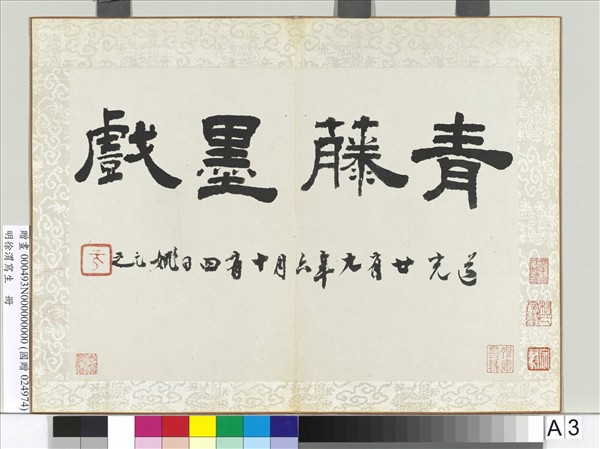 青藤墨戲
道光廿有九年六月十有四日姚元之
贈畫 000493N0000000000 (國贈 024974)
明徐渭寫生 冊
A 3